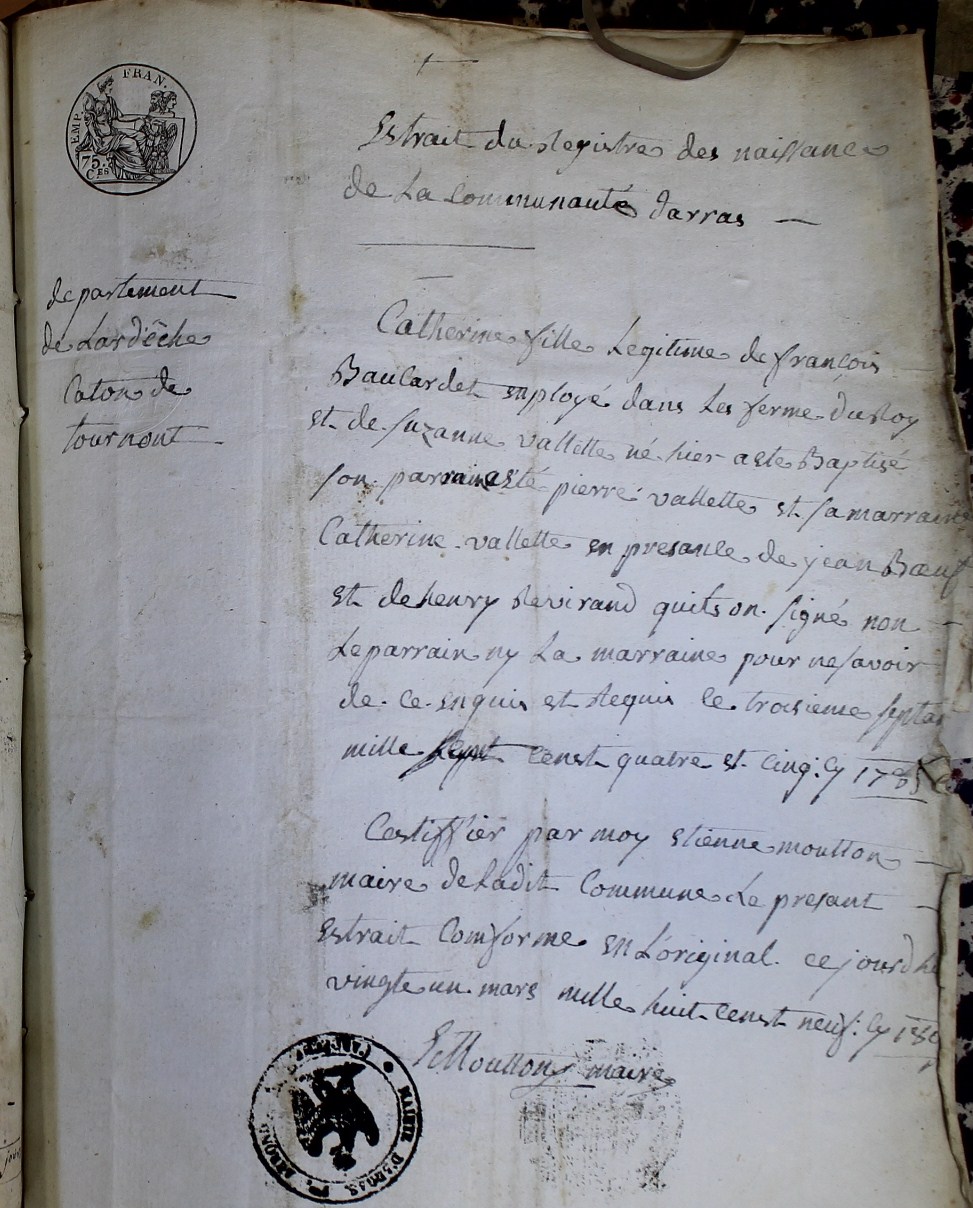 EMP. FRAN.
75.
C.ES
Estrait du Registre des naissance
de La Communauté darras
departement
de Lardêche
Caton de
tournont
Catherine fille Legitime de françois
Baucardet employé dans Les ferme du Roy
et de Suzanne vallette né hier a ete Baptisé
son parrain esté pierre vallette et sa marraine
Catherine vallette en presance de jean Bœuf
et de henry Revirand quits on signé non
Le parrain ny La marraine pour ne savoir
de ce enquis et Requis le troisieme
mille sept censt quatre et cinq: Cy 1785
Certiffier par moy etienne moutton
maire de Ladit Commune Le presant
Estrait Comforme en L'original ce jourdh
vingte un mars mille huit censt neuf: Cy 180
Et Moutton maire
MAIRIE D'ARRAS